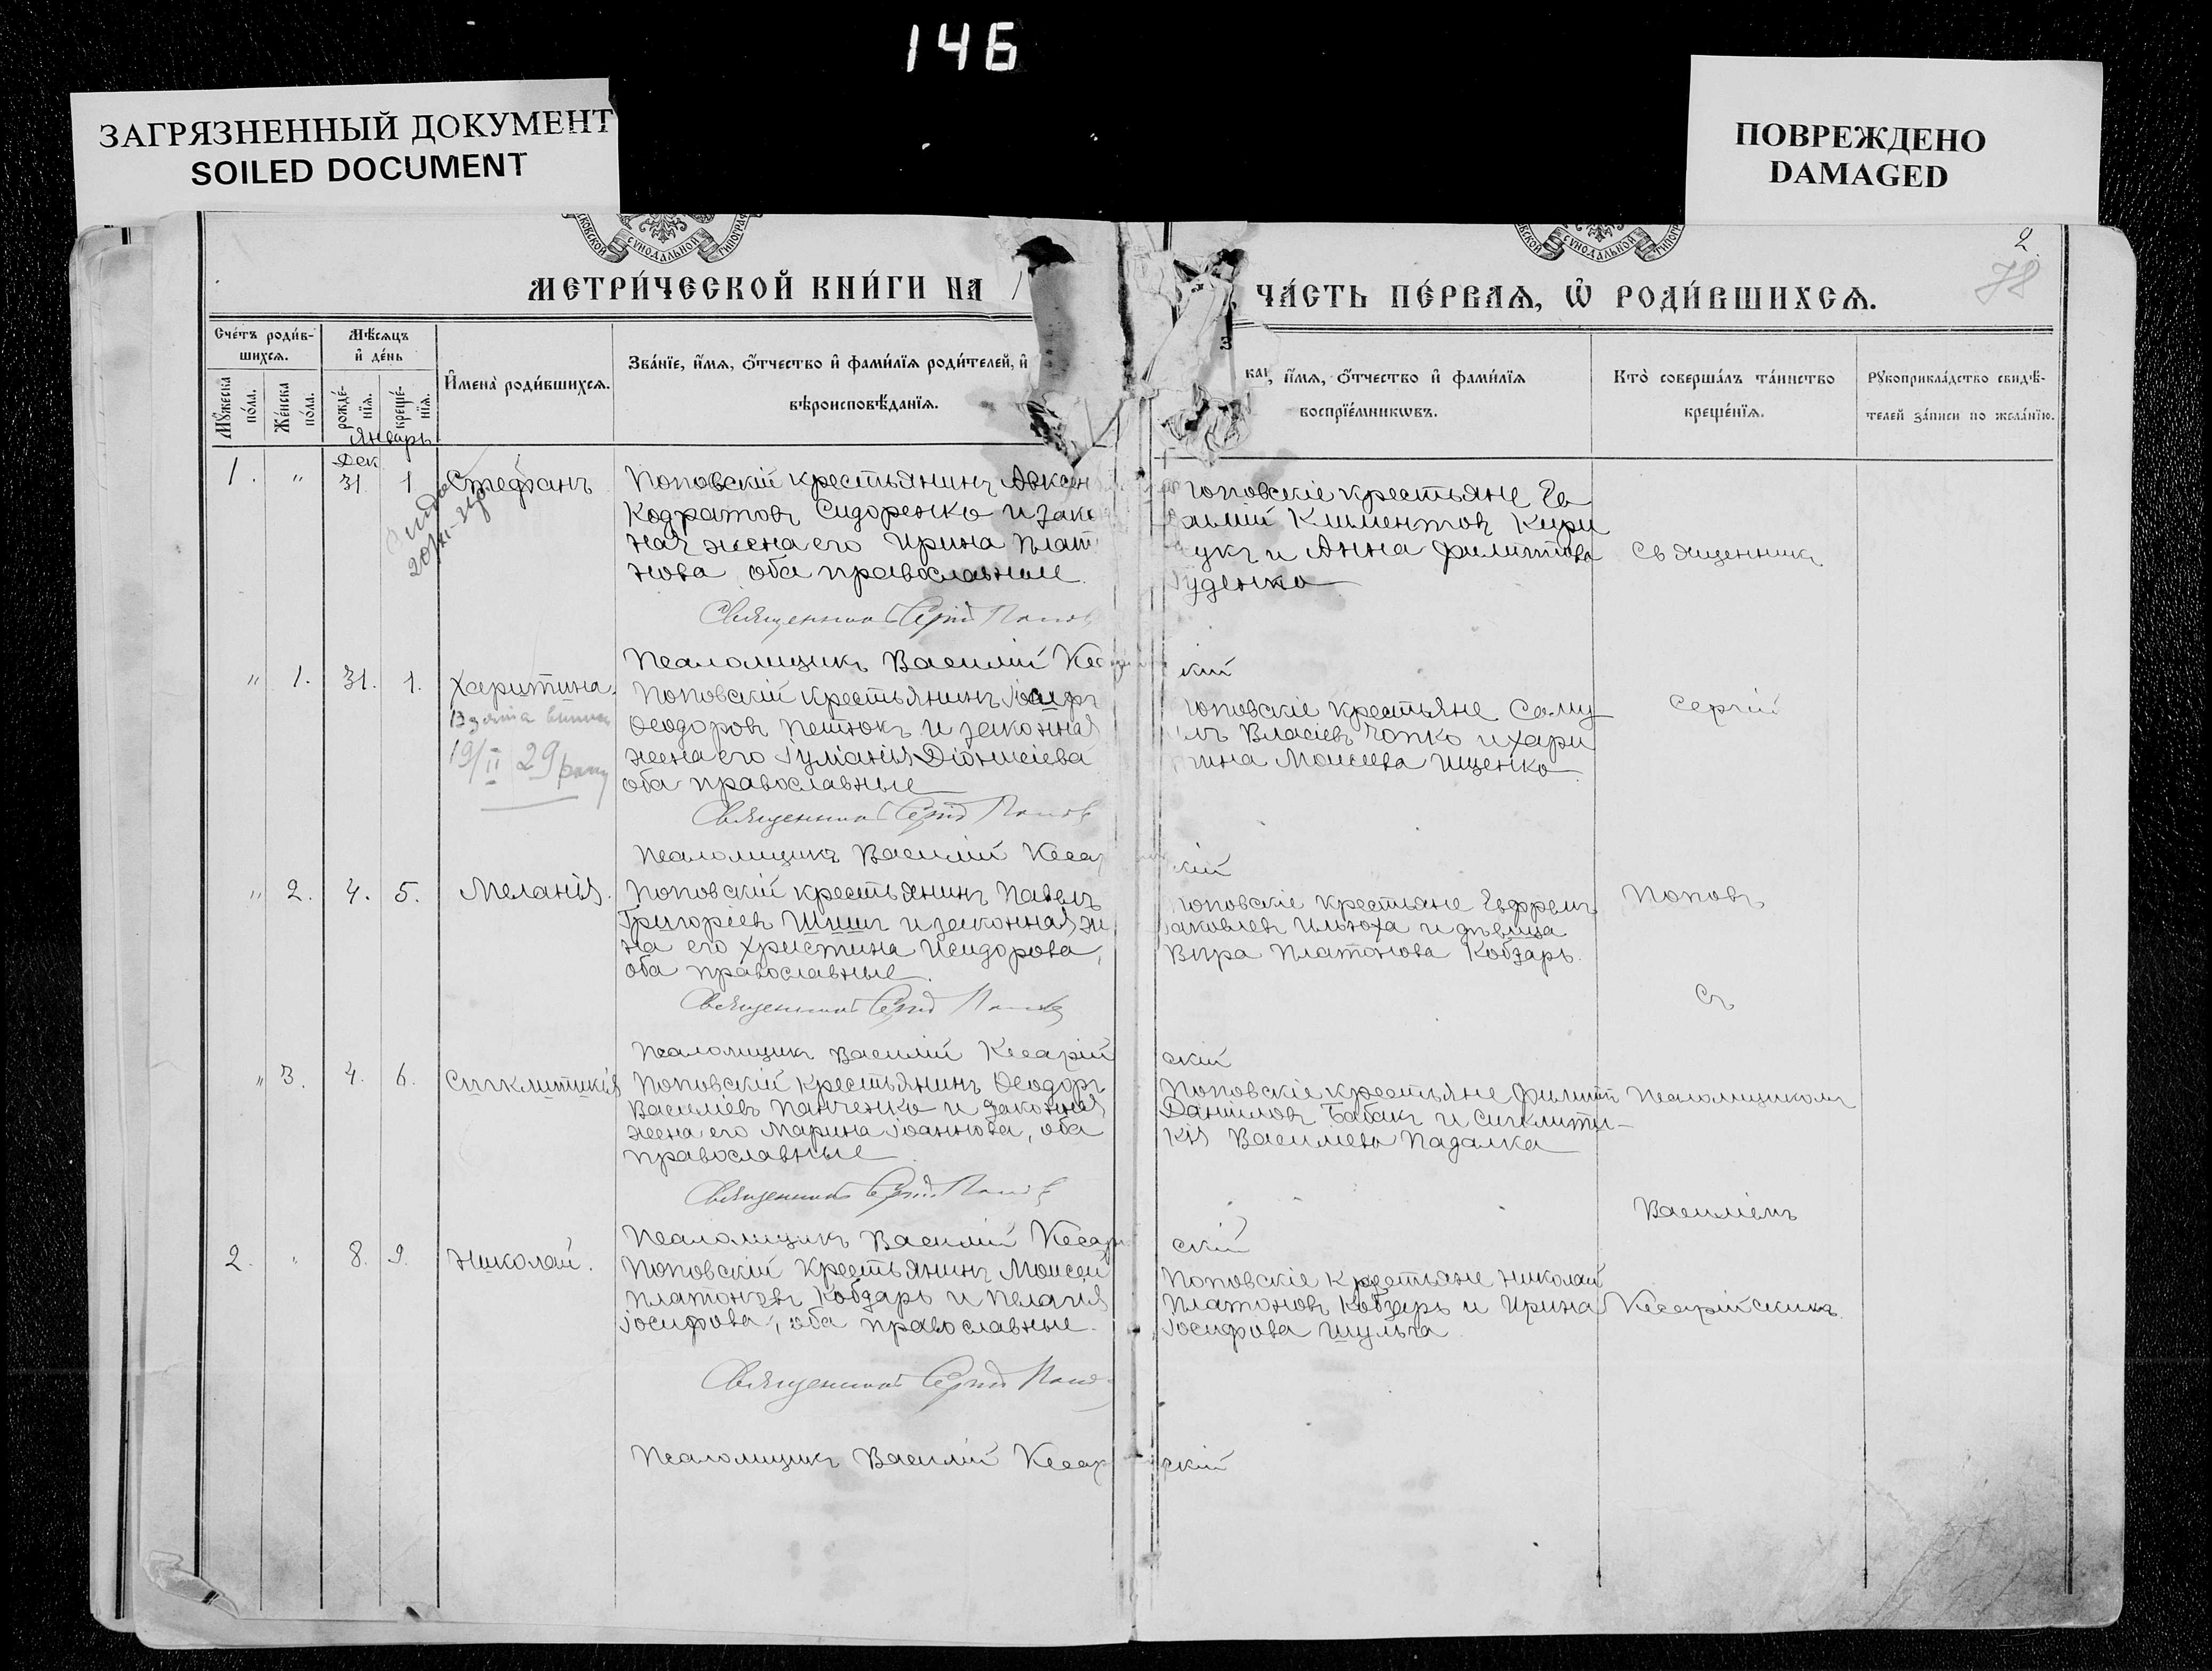 146
ЗАГРЯЗНЕННЫЙ ДОКУМЕНТ
SOILED DOCUMENT
ПОВРЕЖДЕНО
DAMAGED
СѴНОДАЛЬНОЙ
СѴНОДАЛЬНОЙ
2
78
МЕТРИ́ЧЕСКОЙ КНИ́ГИ НА 1
ЧА́СТЬ ПЕ́РВАѦ, Ѡ҆ РОДИ́ВШИХСѦ.
Сче́тъ роди́в-
шихсѧ.
Мꙋ́жеска
по́ла.
Же́нска
по́ла.
Мѣ́сѧцъ
и҆ де́нь
рожде́-
нїѧ.
креще́-
нїѧ.
И҆мена̀ роди́вшихсѧ.
Зва́нїе, и҆́мѧ, ѻ҆́тчество и҆ фами́лїѧ роди́телей, и҆
вѣроисповѣ́данїѧ.
и҆́мѧ, ѻ҆́тчество и҆ фами́лїѧ
воспрїе́мникѡвъ.
Кто̀ соверша́лъ та́инство
креще́нїѧ.
Рꙋкоприкла́дство свидѣ́-
телей за́писи по жела́нїю.
Январь
Дек
1. " 31. 1. Стефанъ
Поповскій крестьянинъ Авксен
Кодратовъ Сидоренко и зако
ная жена его Ирина Плат
нова оба православные.
Священникъ Сергій Попов
Псаломщикъ Василій Кес
кій
оповскіе крестьяне Га
Климентов Кири
укъ и Анна Филиппова
уденко
Священникъ
" 1. 31. 1. Харитина.
19/II 29 року
Поповскій крестьянинъ Іосифъ
Ѳеодоровъ Петюкъ и законная
жена его Іуліанія Діонисіева
оба православные
Священникъ Сергій Попов
Псаломщикъ Василій Кесар
кій
оповскіе крестьяне Саму
лъ Власіевъ Чопко и Хари
тина Моисеева Ищенко
Сергій
" 2. 4. 5. Меланія.
Поповскій крестьянинъ Павелъ
Григоріевъ Шишъ и законная же
на его Христина Исидорова,
оба православные.
Священникъ Сергій Попов
Псаломщикъ Василій Кесарій
скій
оповскіе крестьяне Ефремъ
Іаковлевъ Ильюха и дѣвица
Вѣра Платонова Кобзарь.
Поповъ
Съ
" 3. 4. 6. Сигклитикія
Поповскій крестьянинъ Ѳеодоръ
Василіевъ Панченко и законная
жена его Марина Іоаннова, оба
православные
Священникъ Сергій Попов
Псаломщикъ Василій Кесарій
скій
Поповскіе крестьяне Филиппъ
Даніиловъ Бабакъ и Сигклити-
кія Василиева Падалка
Псаломщикомъ
Василіемъ
2. " 8. 9. Николай.
Поповскій крестьянинъ Моисей
Платоновъ Кобзарь и Пелагія
Іосифова, оба православные.
Священникъ Сергій Попов
Псаломщикъ Василій Кесар
скій
Поповскіе крестьяне Николай
Платоновъ Кобзарь и Ирина
Іосифова Шульга
Кесарійскимъ.